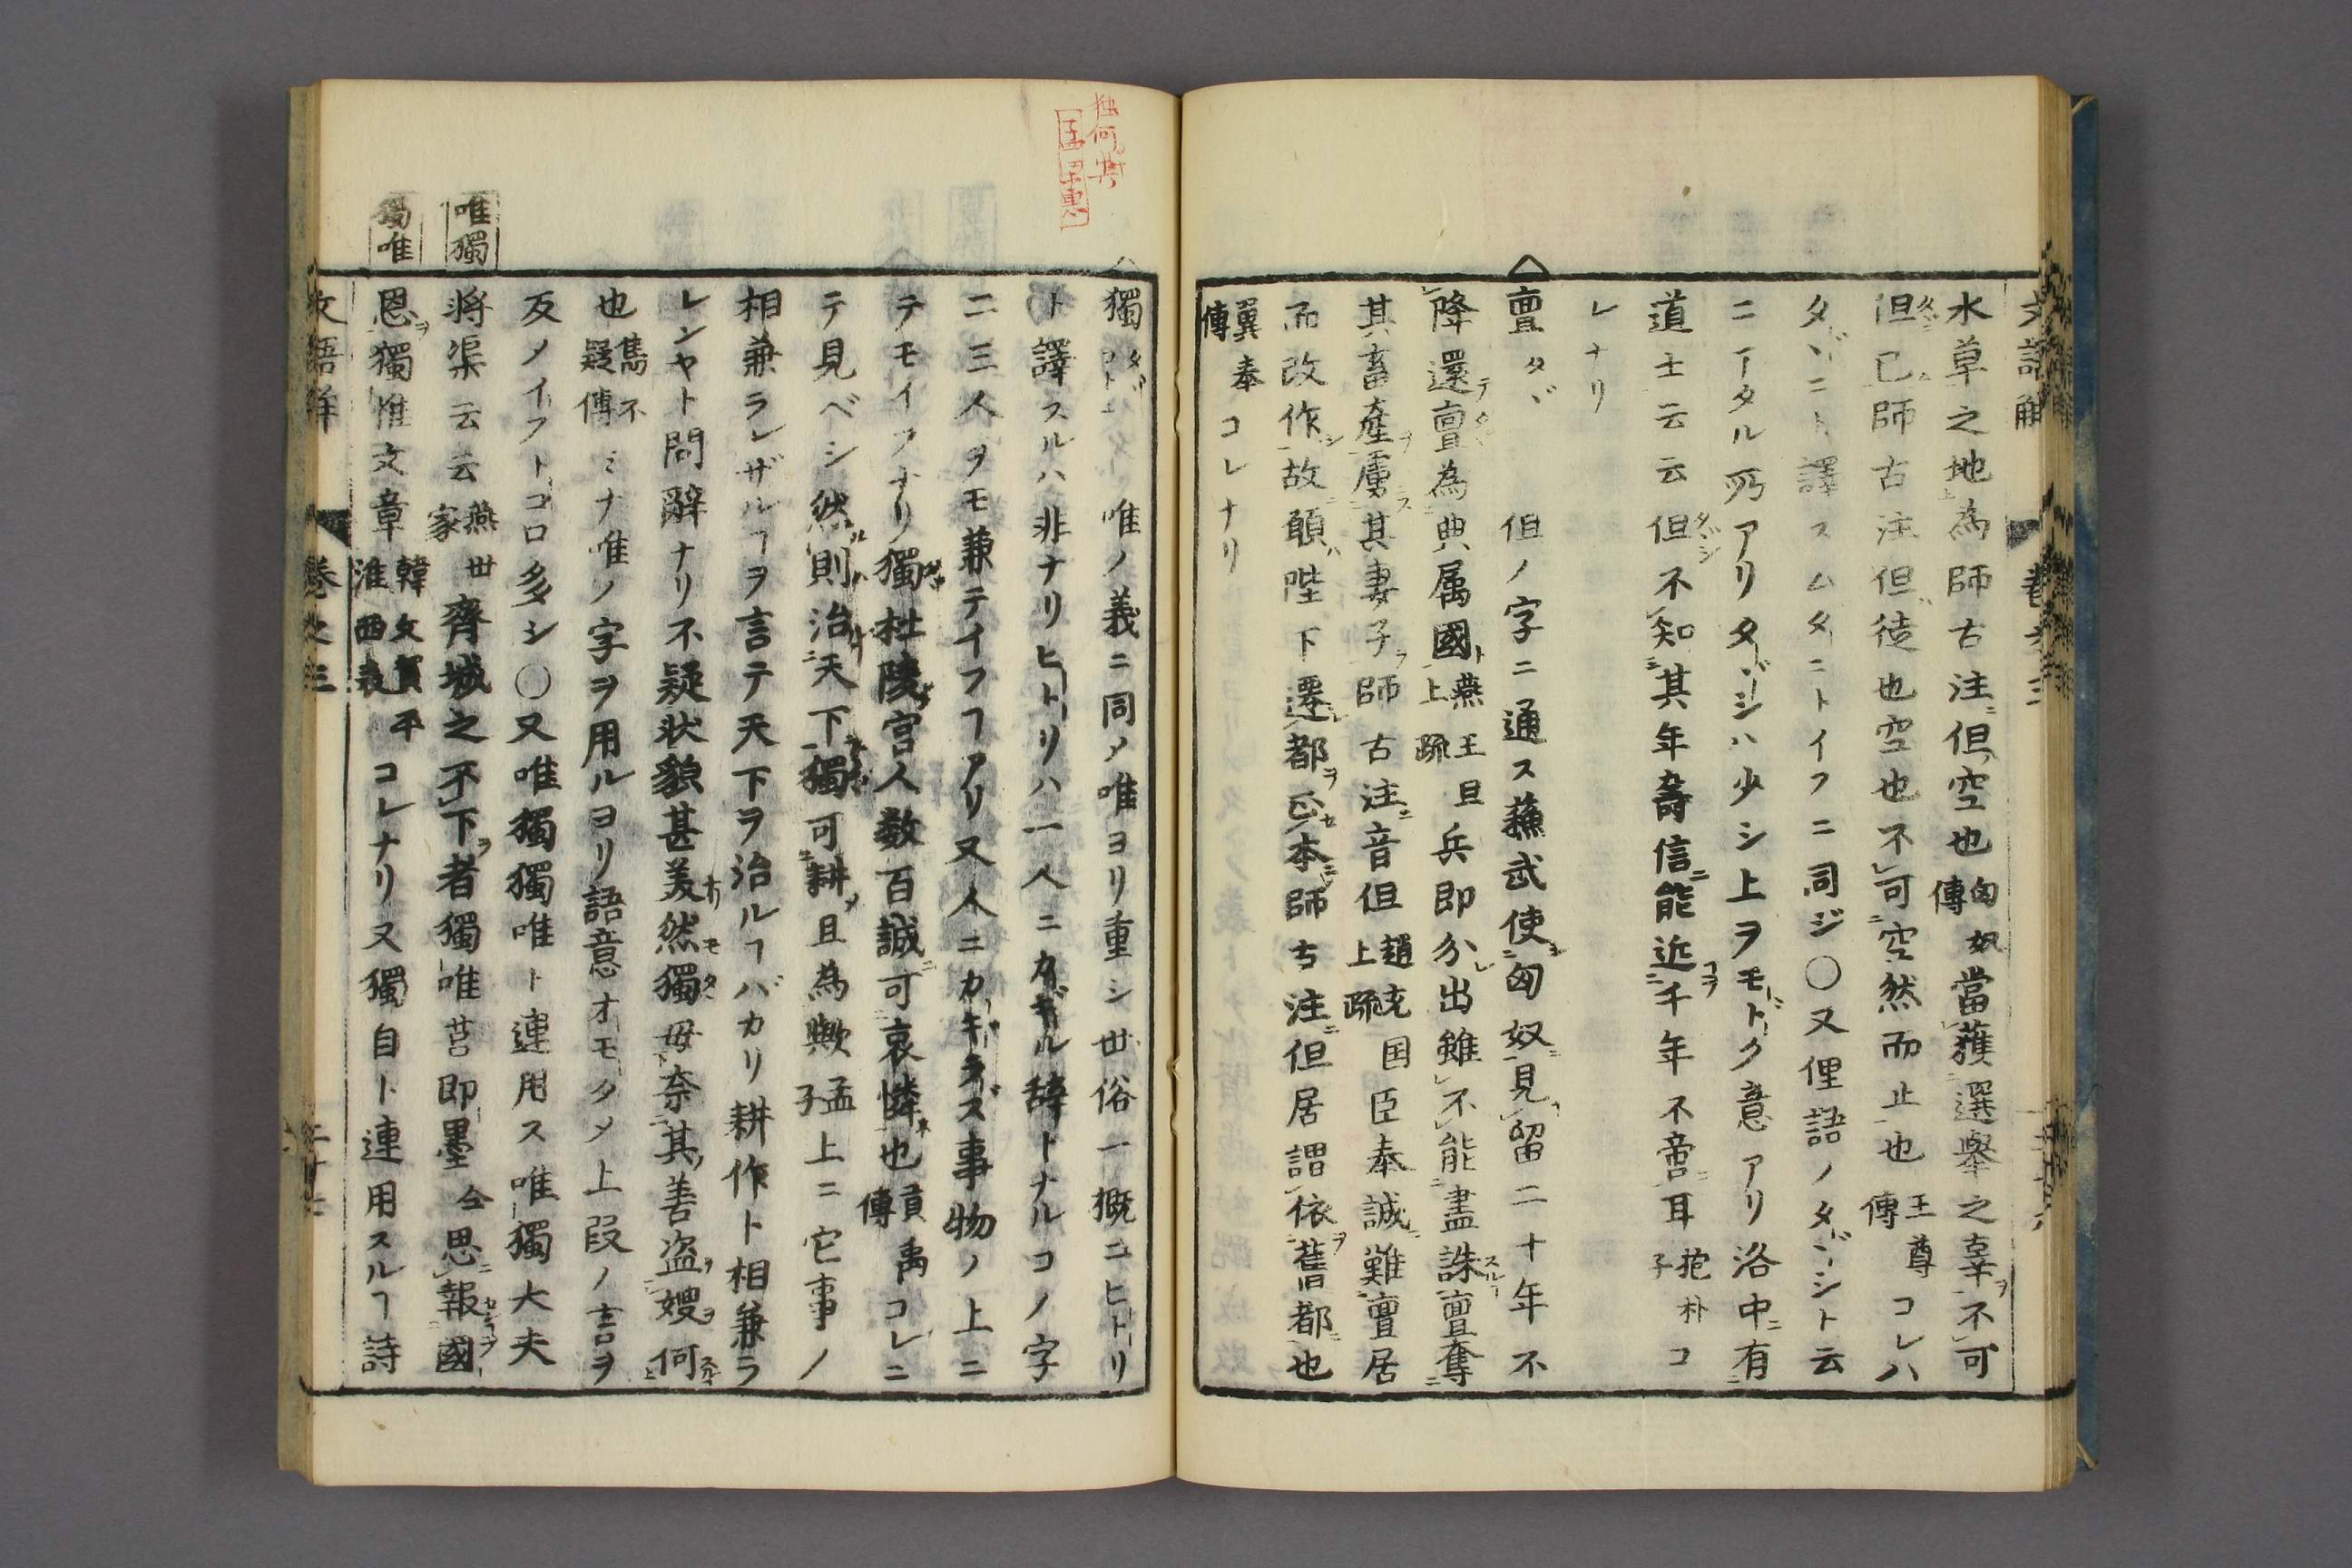 水草之地為師古注但空也匈奴傳當獲選擧之辜不可
但已師古注但徒也空也不可空然而止也王尊傳コレハ
タヾニト譯スムタニトイフニ同ジ○又俚語ノタヾシト云
ニ丁タル所アリタヾシハ少シ上ヲモドク意アリ洛中有
道士云云但不知其年壽信能近千年不啻耳抱朴子コ
レナリ
亶タヾ 但ノ字ニ通ス蘓武使匈奴見留二十年不
降還亶為典属國燕王旦上疏兵即分出雖不能盡誅亶奪
其畜產虜其妻子師古注音但趙充国上疏臣奉誠難亶居
而改作故願陛下遷都正本師古注但居謂依舊都也
翼奉傳コレナリ
獨 唯ノ義ニ同メ唯ヨリ重シ世俗一概ニヒトリ
ト譯スルハ非ナリヒトリハ一人ニカギル辞トナルコノ字
二三人ヲモ兼テイフヿアリ又人ニカギラズ事物ノ上ニ
テモイフナリ獨杜陵宮人数百誠可哀憐也貢禹傳コレニ
テ見ベシ然則治天下獨可耕且為歟孟子上ニ它事ノ
相兼ラレザルヿヲ言テ天下ヲ治ルヿバカリ耕作ト相兼ラ
レンヤト問辭ナリ不疑状貌甚美然獨毋奈其善盗嫂何
也雋不疑傳ミナ唯ノ字ヲ用ルヨリ語意オモタメ上段ノ言ヲ
反ノイフトコロ多シ○又唯獨獨唯ト連用ス唯獨大夫
將渠云云燕世家齊城之不下者獨唯莒即墨仝思報國
恩獨惟文章韓文賀平淮西表コレナリ又獨自ト連用スルヿ詩
唯獨
獨唯
文語解
卷之三